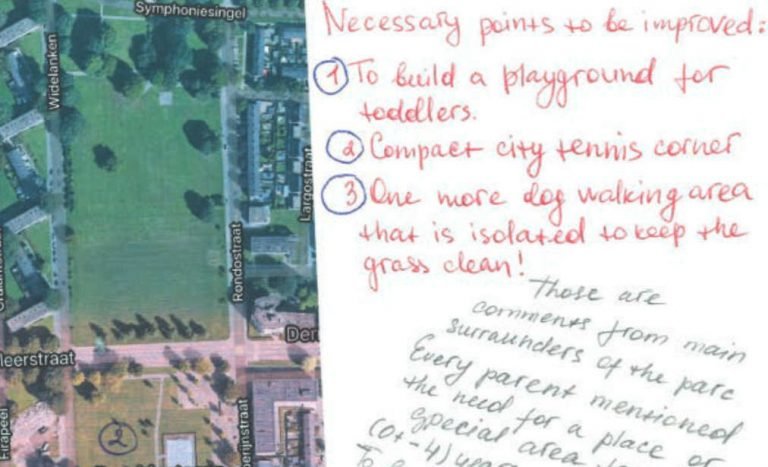 Symphoniesingel
Widelanken
Largostraat
Rondostraat
leerstraat
Den
Firapeel
erijnstraat
2
Necessary points to be improved:
1 To build a playground for
toddlers.
2 Compact city tennis corner
3 One more dog walking area
that is isolated to keep the
grass clean!
Those are
comments from main
surraunders of the parc
Every parent mentioned
the need for a place or
special area
(0+-4) years
To